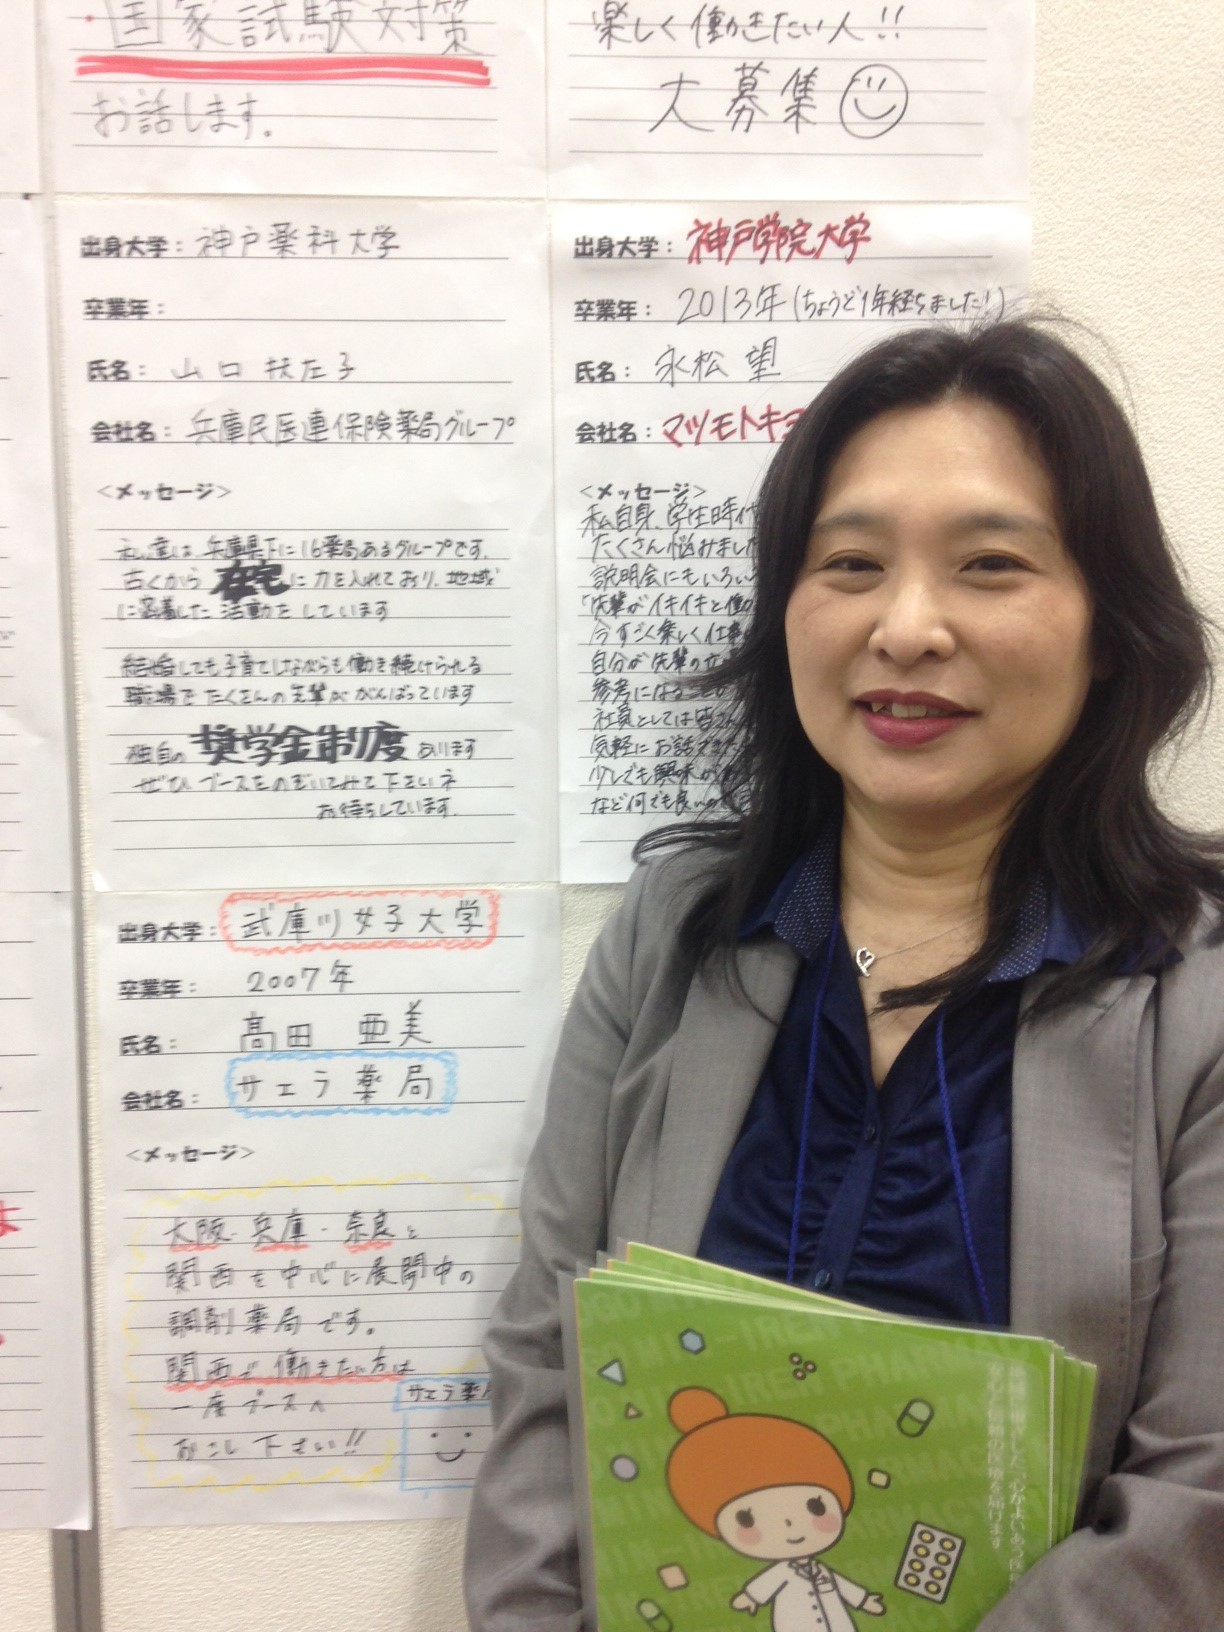 ・国家試験対策
お話します。
楽しく働きたい人!!
大募集
出身大学： 神戸薬科大学
卒業年：
氏名： 山口 扶左子
会社名： 兵庫民医連保険薬局グループ
＜メッセージ＞
私達は、兵庫県下に16薬局あるグループです。
古くから 在宅に力を入れており、地域
に密着した活動をしています
結婚しても子育てしながらも働き続けられる
職場でたくさんの先輩ががんばっています
独自の 奨学金制度 あります
ぜひ ブースをのぞいてみて下さいネ
お待ちしています。
出身大学： 神戸学院大学
卒業年： 2013年(ちょうど1年経ちました!)
氏名： 永松 望
会社名： マツモトキヨ
＜メッセージ＞
私自身、学生時代
たくさん悩みました
説明会にもいろいろ
「先輩がイキイキと働
今すごく楽しく仕事
自分が先輩の立
参考になること
社員としては皆さん
気軽にお話できた
少しでも興味があ
など何でも良いの
出身大学： 武庫川女子大学
卒業年： 2007年
氏名： 髙田 亜美
会社名： サエラ薬局
＜メッセージ＞
大阪・兵庫・奈良と
関西を中心に展開中の
調剤薬局です。
関西で働きたい方は
一度ブースへ
おこし下さい!!
サエラ薬
PHARMACY